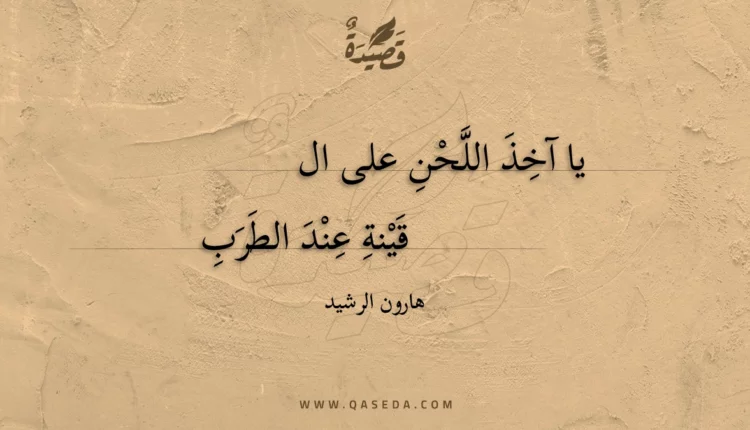 قَصِيدَةٌ
يا آخِذَ اللَّحْنِ على ال
قَيْنةِ عِنْدَ الطَرَبِ
هارون الرشيد
WWW.QASEDA.COM